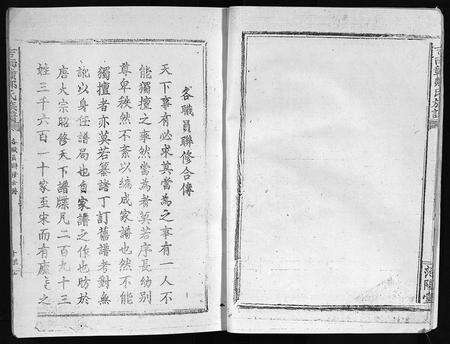 各職員聯修合傳
天下事有必求其當為之事有一人不
能獨擅之事然當為者莫若序長幼別
尊卑秩然不紊以編成家譜也然不能
獨擅者亦莫若纂譜丁訂舊譜者對無
訛以身任譜局也自家譜之作也昉於
唐太宗昭修天下譜牒凡二百九十三
姓三千六百一十家至宋而有廬之
滎陽堂